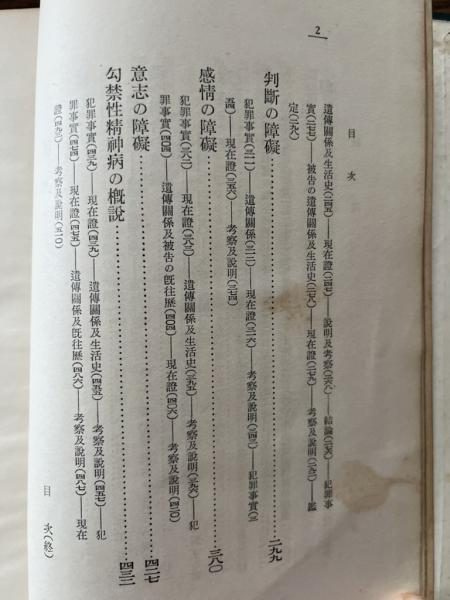 2
目次
遺傳關係及生活史(二四五)——現在證(二四七)——說明及考察(二六八)——結論(二七六)——犯罪事
實(二七七)——被告の遺傳關係及生活史(二七九)——現在證(二七九)——考察及說明(二九二)——鑑
定(二九)
判斷の障礙……二九九
犯罪事實(三一一)——遺傳關係(三一二)——現在證(三一六)——考察及說明(三四三)——犯罪事實(三
五五)——現在證(三五六)——考察及說明(三七四)
感情の障礙……三八〇
犯罪事實(三八二)——現在證(三八三)——遺傳關係及生活史(三九五)——考察及說明(三九六)——犯
罪事實(四〇四)——遺傳關係及被告の既往歷(四〇四)——現在證(四〇六)——考察及說明(四二〇)
意志の障礙……四二七
勾禁性精神病の槪說……四三二
犯罪事實(四三九)——現在證(四三九)——遺傳關係及生活史(四五五)——考察及說明(四五七)——犯
罪事實(四七四)——現在證(四七五)——遺傳關係及既往歷(四八六)——考察及說明(四八七)——現在
證(四九二)——考察及說明(五一〇)
目次(終)